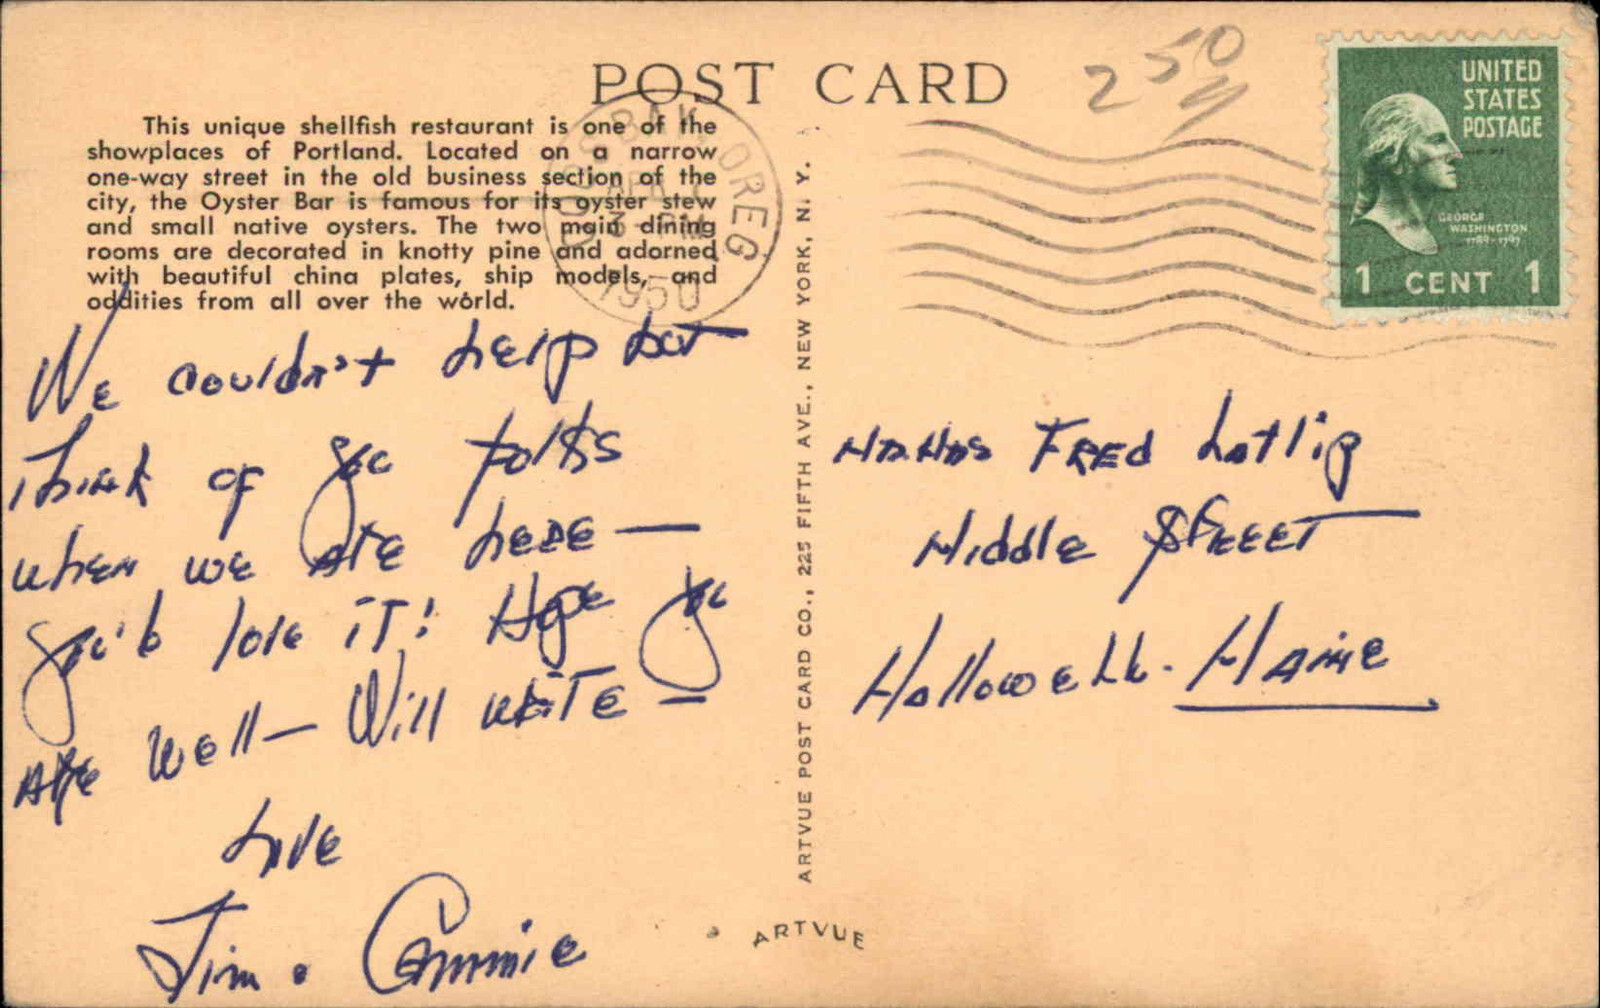 POST CARD
2 50
This unique shellfish restaurant is one of the
showplaces of Portland. Located on a narrow
one-way street in the old business section of the
city, the Oyster Bar is famous for its oyster stew
and small native oysters. The two main dining
rooms are decorated in knotty pine and adorned
with beautiful china plates, ship models, and
oddities from all over the world.
OREG
1950
UNITED
STATES
POSTAGE
GEORGE
WASHINGTON
1789-1797
1 CENT 1
We couldn't help but
think of you folks
when we are here —
you'd love it! Hope you
are well — Will write —
Love
Jim & Connie
Mr. Mrs Fred
Middle Street
Hallowell. Maine
ARTVUE POST CARD CO., 225 FIFTH AVE., NEW YORK, N. Y.
ARTVUE